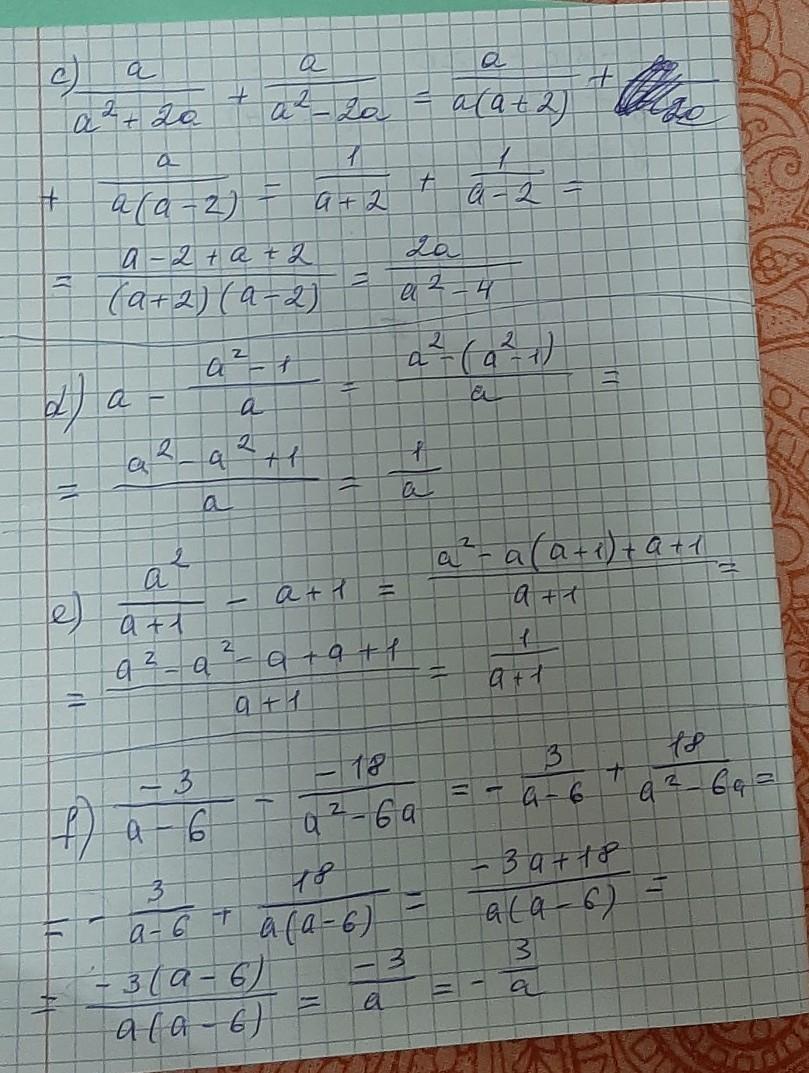 c) a/(a²+2a) + a/(a²-2a) = a/(a(a+2)) +
+ a/(a(a-2)) = 1/(a+2) + 1/(a-2) =
= (a-2+a+2)/((a+2)(a-2)) = 2a/(a²-4)
d) a - (a²-1)/a = (a²-(a²-1))/a =
= (a²-a²+1)/a = 1/a
e) a²/(a+1) - a+1 = (a²-a(a+1)+a+1)/(a+1) =
= (a²-a²-a+a+1)/(a+1) = 1/(a+1)
f) (-3)/(a-6) - (-18)/(a²-6a) = - 3/(a-6) + 18/(a²-6a) =
= - 3/(a-6) + 18/(a(a-6)) = (-3a+18)/(a(a-6)) =
= (-3(a-6))/(a(a-6)) = (-3)/a = - 3/a